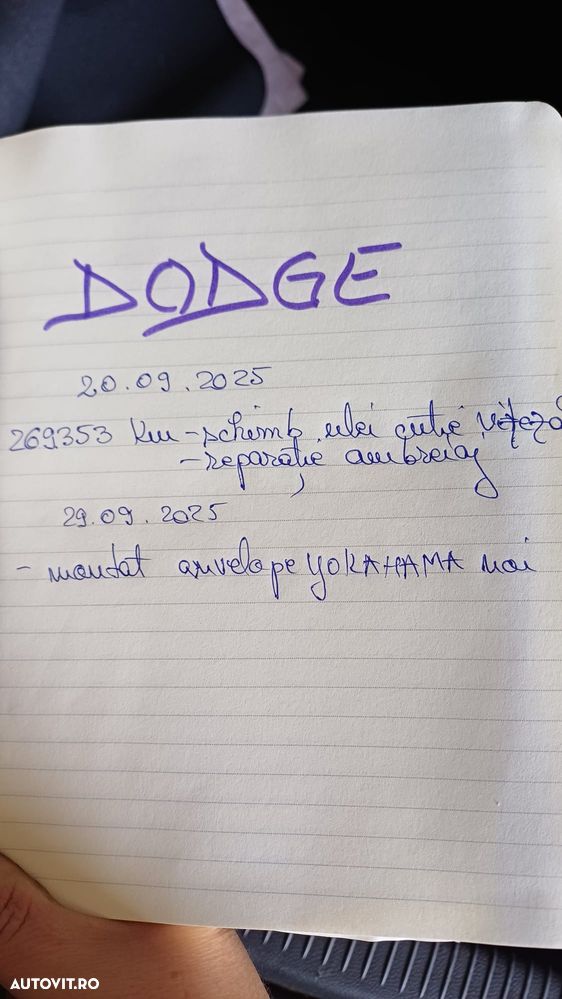 DODGE
20.09.2025
269353 Km - schimb ulei cutie viteză
- reparație ambreiaj
29.09.2025
- montat anvelope YOKAHAMA noi
AUTOVIT.RO